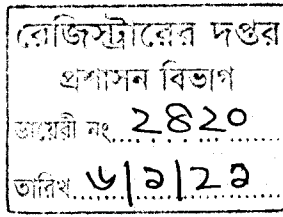 রেজিস্ট্রারের দপ্তর
প্রশাসন বিভাগ
ডায়েরী নং ২৪২০
তারিখ ৬|১|২১